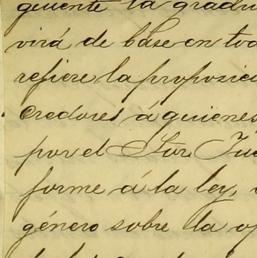 guiente la gradu
virá de base en tod
refiere la proposici
creedores á quienes
por el Sor Jue
forme á la ley,
género sobre la op